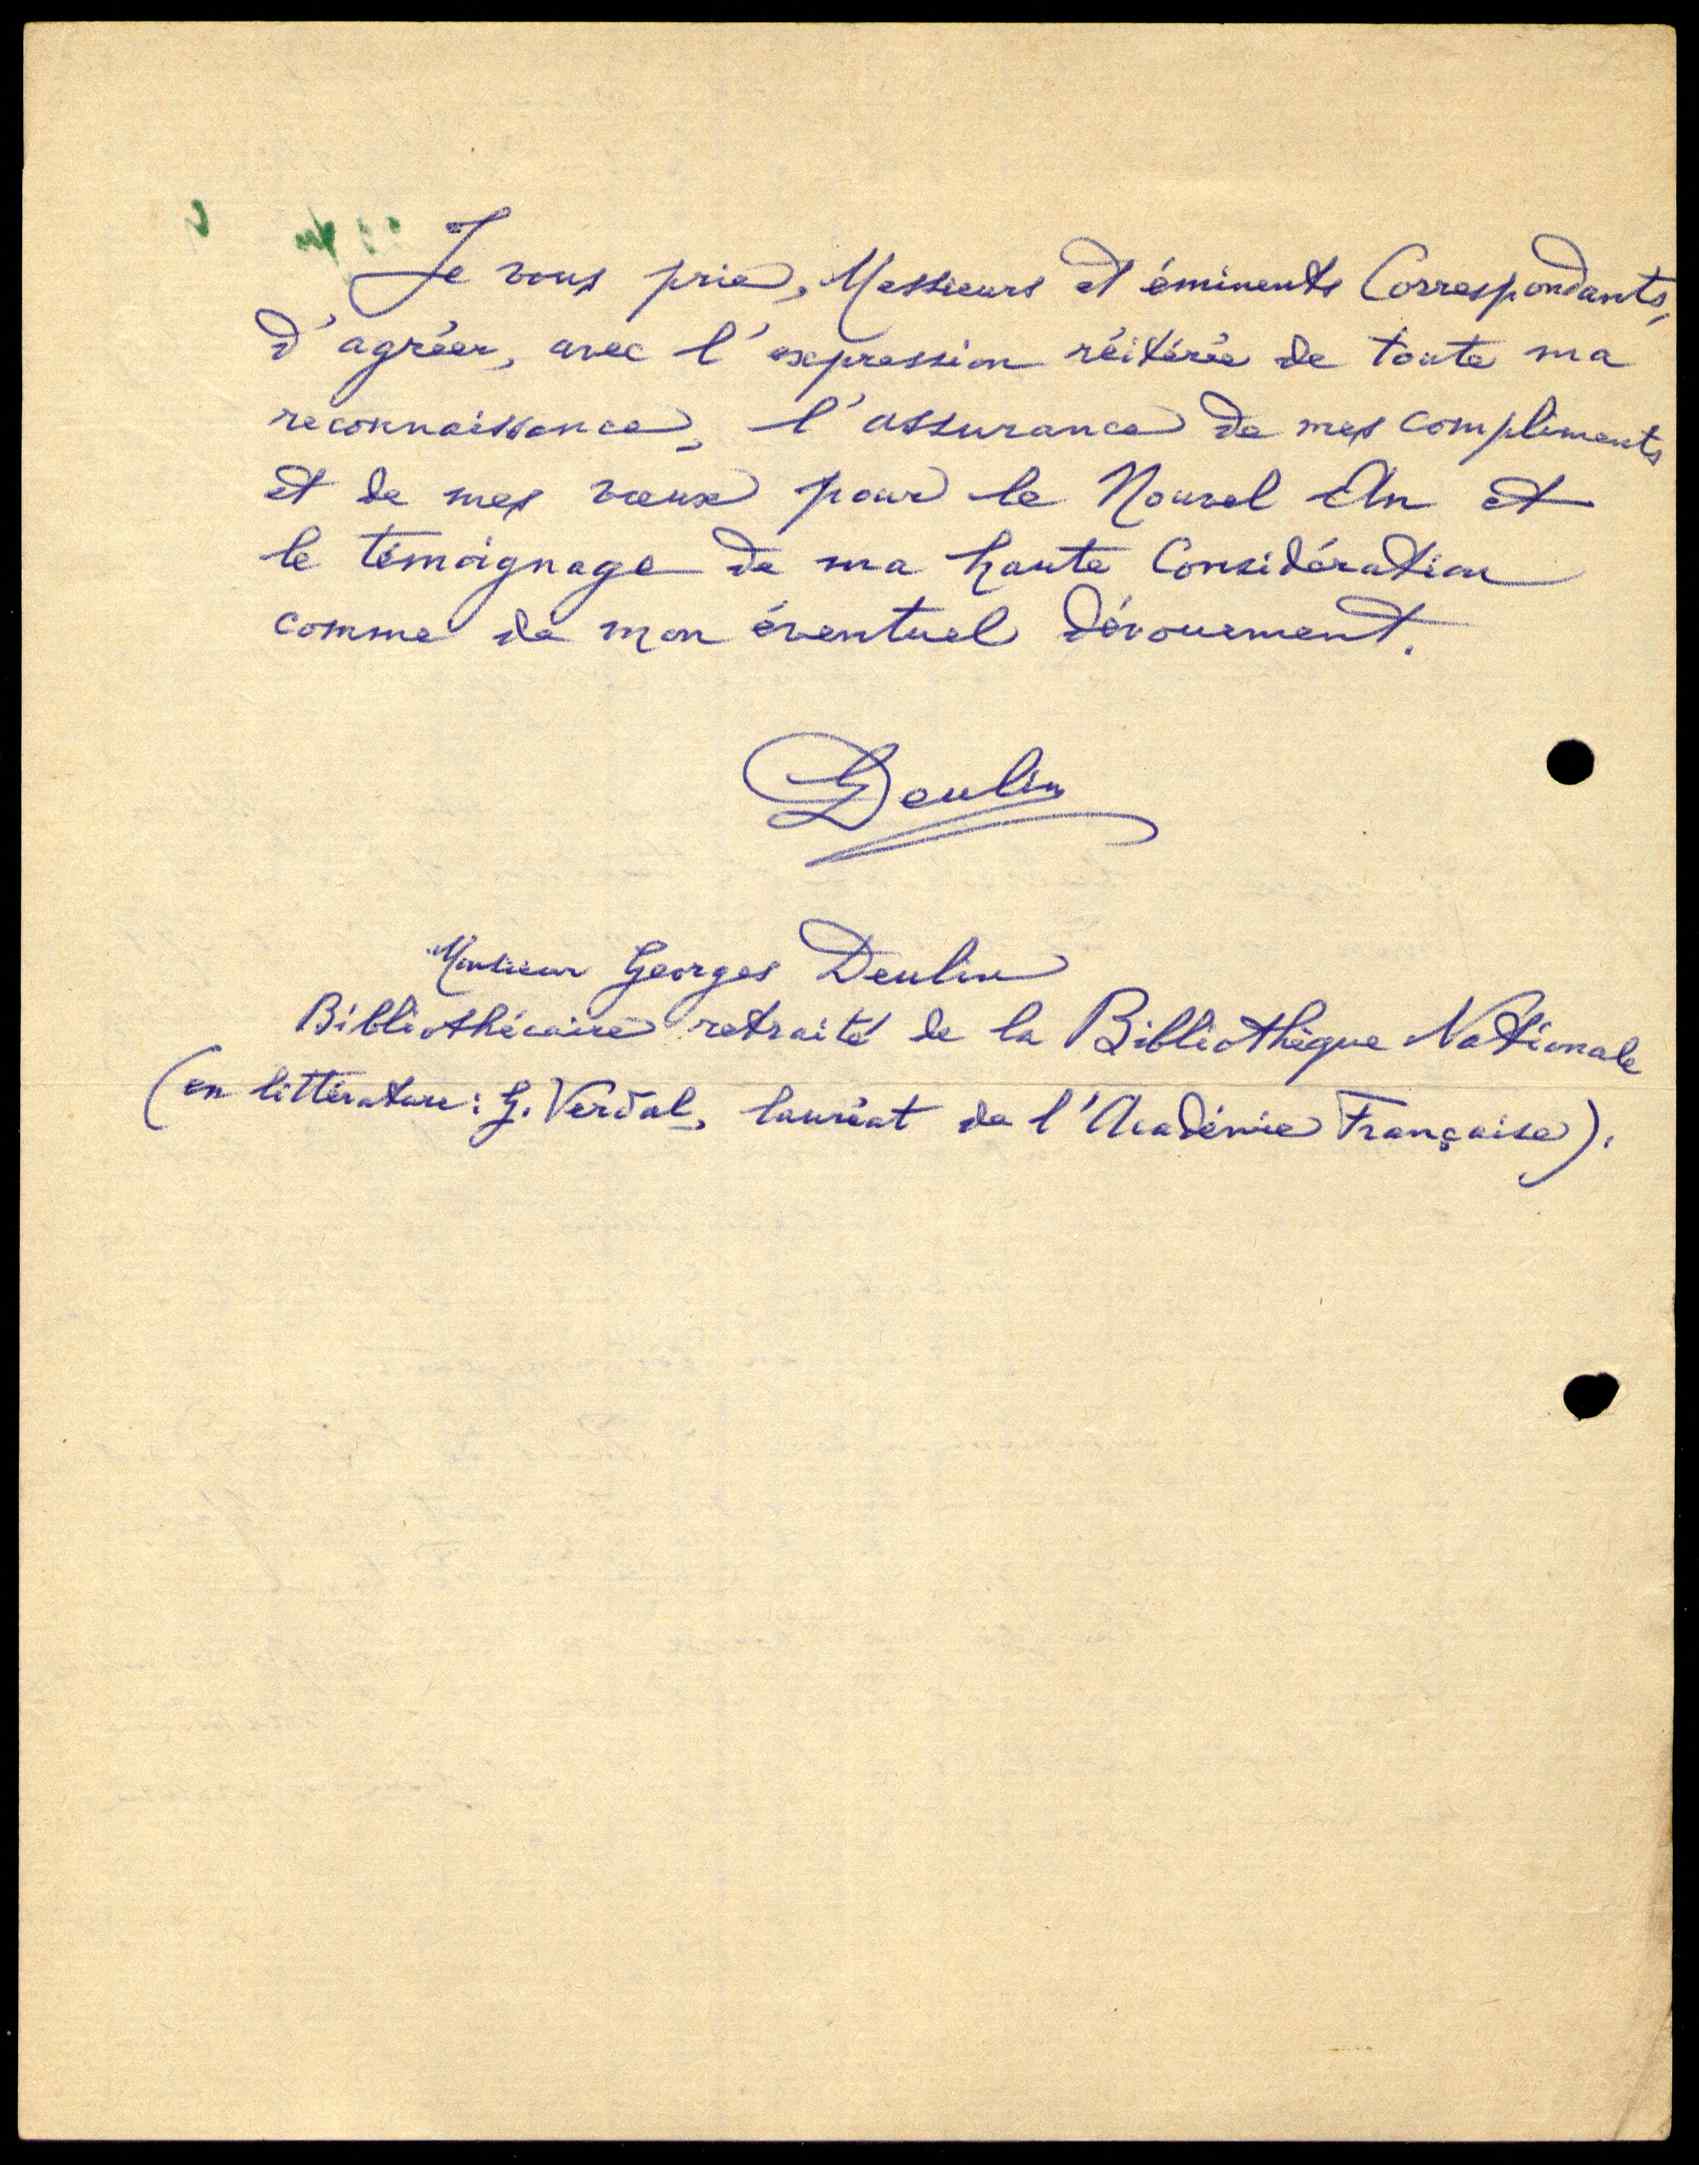 Je vous prie, Messieurs et éminents Correspondants,
d'agréer, avec l'expression réitérée de toute ma
reconnaissance, l'assurance de mes compliments
et de mes vœux pour le Nouvel An et
le témoignage de ma haute Considération
comme de mon éventuel dévouement.
GDeulin
Monsieur Georges Deulin
Bibliothécaire retraité de la Bibliothèque Nationale
(en littérature: G. Verdal, lauréat de l'Académie Française).